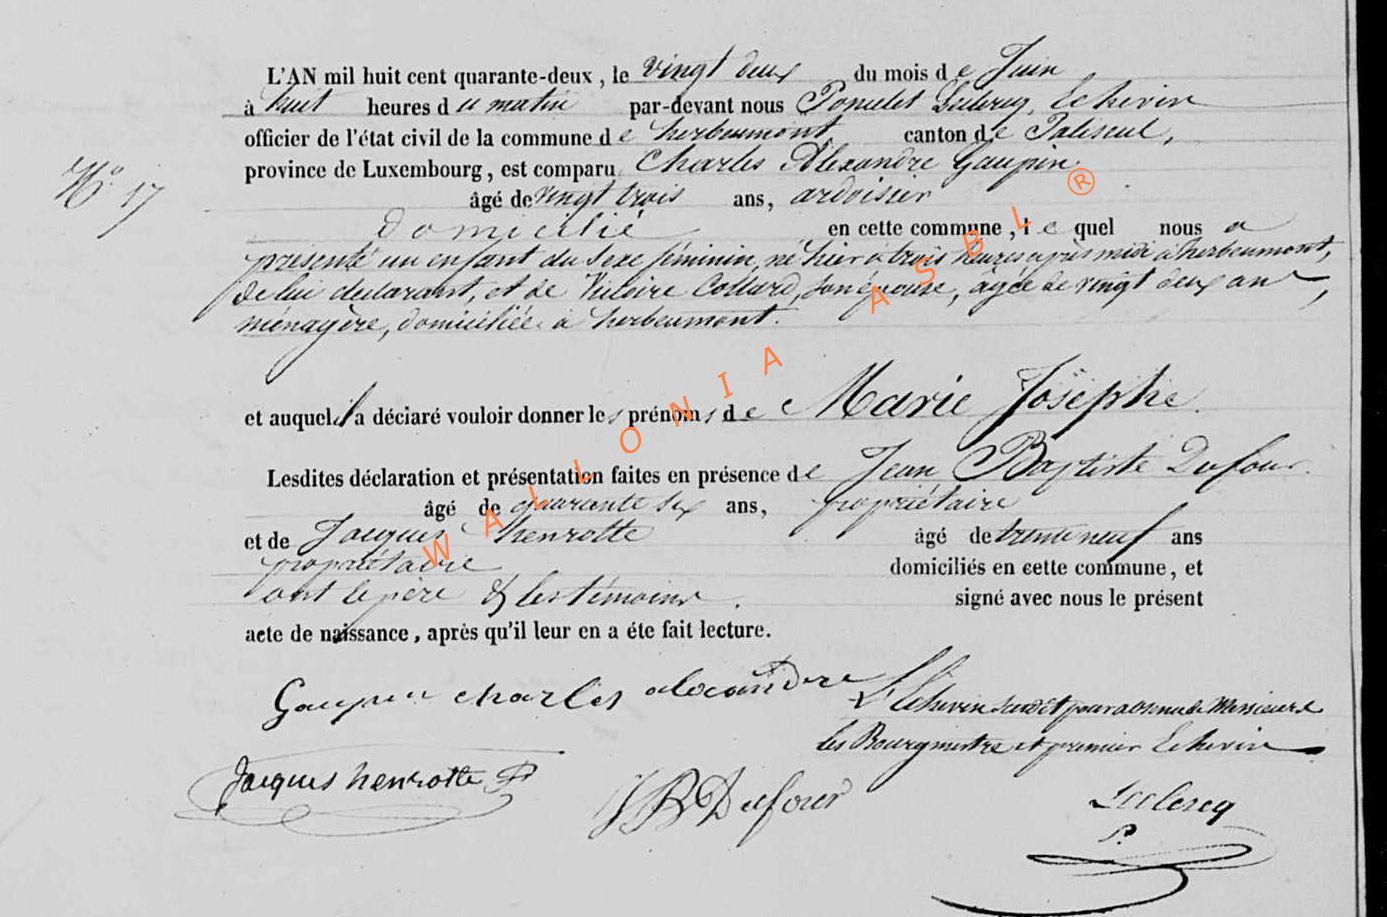 L'AN mil huit cent quarante-deux, le vingt deux du mois de Juin
à huit heures du matin par-devant nous Leclercq, Echevin
officier de l'état civil de la commune de herbeumont, canton de Paliseul,
province de Luxembourg, est comparu Charles Alexandre Gaupin
âgé de vingt trois ans, ardoisier
domicilié en cette commune, lequel nous a
présenté un enfant du sexe féminin, né hier à trois heures après midi à herbeumont,
de lui déclarant, et de Collard, son épouse, âgée de vingt deux ans,
ménagère, domiciliée à herbeumont.
N° 17
et auquel il a déclaré vouloir donner les prénoms de Marie Josephe.
Lesdites déclaration et présentation faites en présence de Jean Baptiste Dufour
âgé de quarante six ans, propriétaire
et de Jacques henrotte âgé de trente neuf ans
propriétaire domiciliés en cette commune, et
ont le père & les témoins signé avec nous le présent
acte de naissance, après qu'il leur en a éte fait lecture.
Gaupin charles alexandre
L'Echevin susdit pour absence de Messieurs
les Bourgmestre et premier Echevin
Jacques henrotte
JB Dufour
Leclercq
WALLONIA ASBL ®